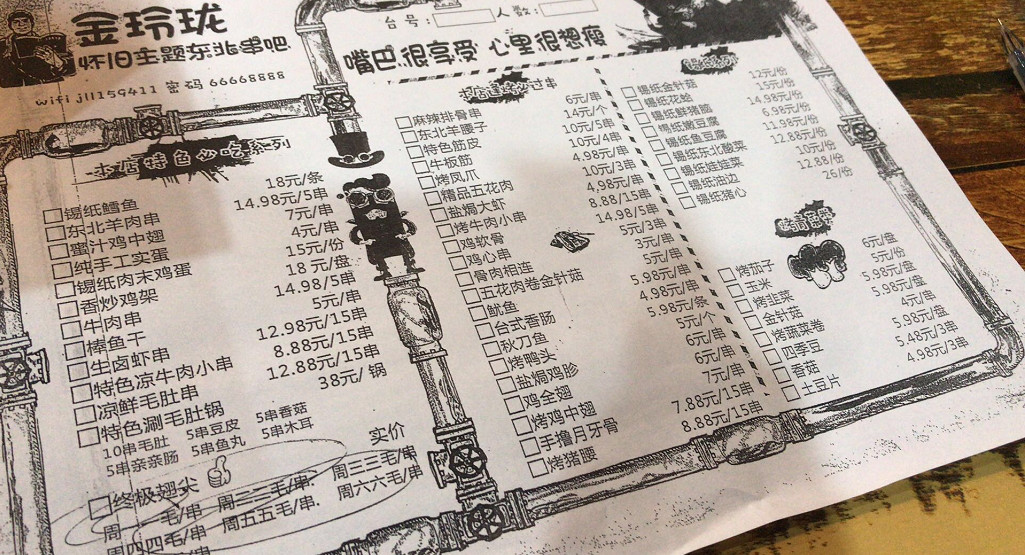 金玲珑
怀旧主题东北串吧
wifi jll159411 密码 66668888
台号: 人数:
嘴巴很享受 心里很想瘦
本店特色必吃系列
锡纸鳕鱼 18元/条
东北羊肉串 14.98元/5串
蜜汁鸡中翅 7元/串
纯手工实蛋 4元/串
锡纸肉末鸡蛋 15元/份
香炒鸡架 18元/盘
牛肉串 14.98/5串
棒鱼干 5元/串
生卤虾串 12.98元/15串
特色凉牛肉小串 8.88元/15串
凉鲜毛肚串 12.88元/15串
特色涮毛肚锅 38元/锅
10串毛肚 5串豆皮 5串香菇
5串亲亲肠 5串鱼丸 5串木耳
终极翅尖 实价
周一一毛/串 周二二毛/串. 周三三毛/串
周四四毛/串 周五五毛/串. 周六六毛/串.
麻辣排骨串 6元/串
东北羊腰子 14元/个
特色筋皮 10元/5串
牛板筋 10元/4串
烤凤爪 4.98元/串
精品五花肉 10元/3串
盐焗大虾 4.98元/串
烤牛肉小串 8.88/15串
鸡软骨 14.98/5串
鸡心串 5元/3串
骨肉相连 3元/串
五花肉卷金针菇 5元/串
鱿鱼 5.98元/串
台式香肠 4.98元/串
秋刀鱼 5.98元/条
烤鸭头 5元/个
盐焗鸡胗 6元/串
鸡全翅 6元/串
烤鸡中翅 7元/串
手撸月牙骨 7.88元/15串
烤猪腰 8.88元/15串
锡纸金针菇 12元/份
锡纸花蛤 15元/份
锡纸鲜猪脑 14.98元/份
锡纸嫩豆腐 6.98元/份
锡纸鱼豆腐 11.98元/份
锡纸东北酸菜 12.88元/份
锡纸娃娃菜 10元/份
锡纸油边 12.88/份
锡纸猪心 26/份
烤茄子 6元/盘
玉米 5元/份
烤韭菜 5.98元/盘
金针菇 5.98元/盘
烤蔬菜卷 4元/串
四季豆 5.98元/盘
香菇 5.48元/3串
土豆片 4.98元/3串